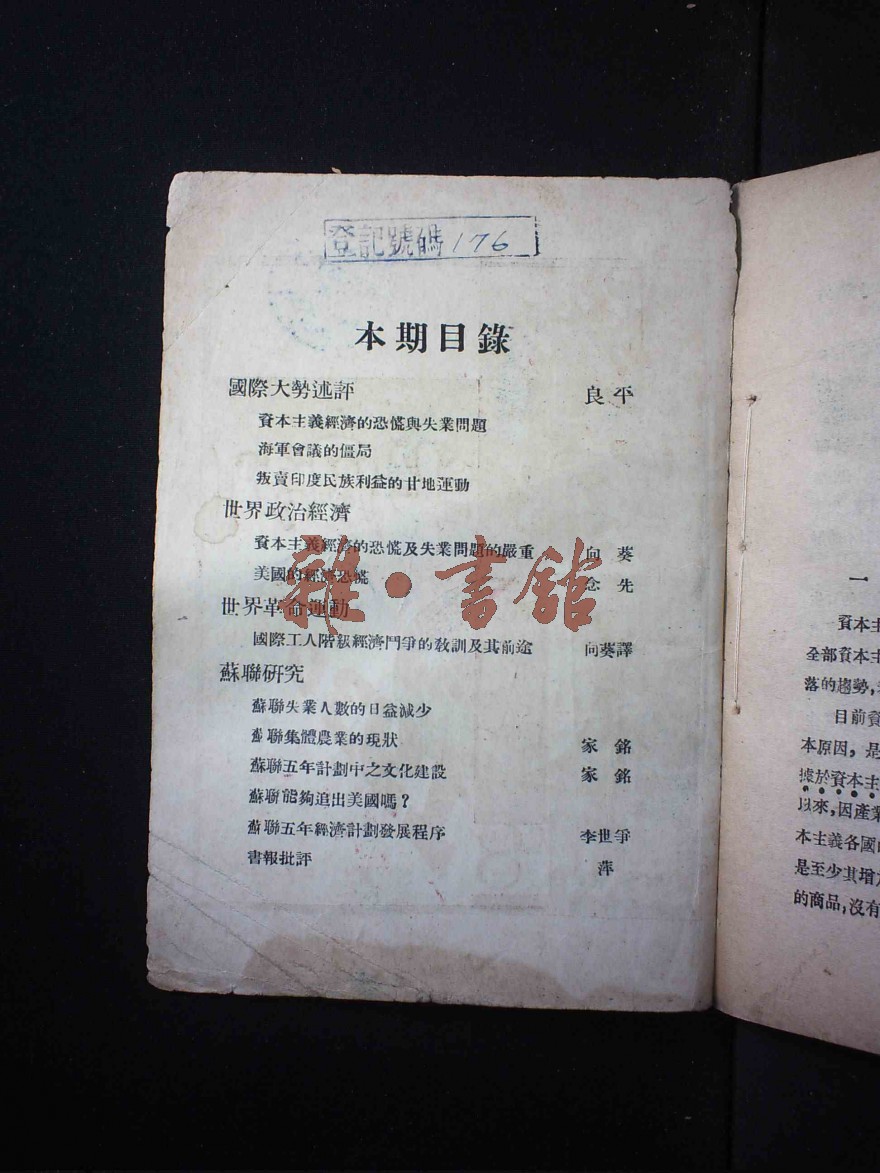 登記號碼 176
本期目錄
國際大勢述評 良平
資本主義經濟的恐慌與失業問題
海軍會議的僵局
叛賣印度民族利益的甘地運動
世界政治經濟
資本主義經濟的恐慌及失業問題的嚴重 向葵
美國的經濟恐慌 念先
世界革命運動
國際工人階級經濟鬥爭的敎訓及其前途 向葵譯
蘇聯研究
蘇聯失業人數的日益減少
蘇聯集體農業的現狀 家銘
蘇聯五年計劃中之文化建設 家銘
蘇聯能夠追出美國嗎？
蘇聯五年經濟計劃發展程序 李世爭
書報批評 萍
雜·書館
一
資本主
全部資本主
落的趨勢,
目前資
本原因，是
據於資本主
以來，因產業
本主義各國
是至少其增
的商品，沒有